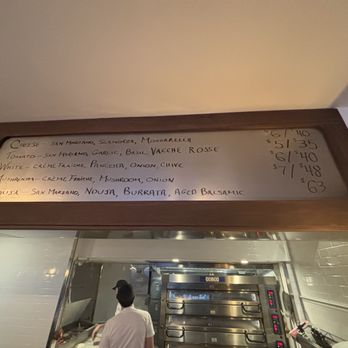 Cheese - San Marzano, Scamorza, Mozzarella $6/$40
Tomato - San Marzano, Garlic, Basil, Vacche Rosse $5/$35
White - Crème Fraîche, Pancetta, Onion, Chive $6/$40
Mushroom - Crème Fraîche, Mushroom, Onion $7/$48
Nduja - San Marzano, Nduja, Burrata, Aged Balsamic $63